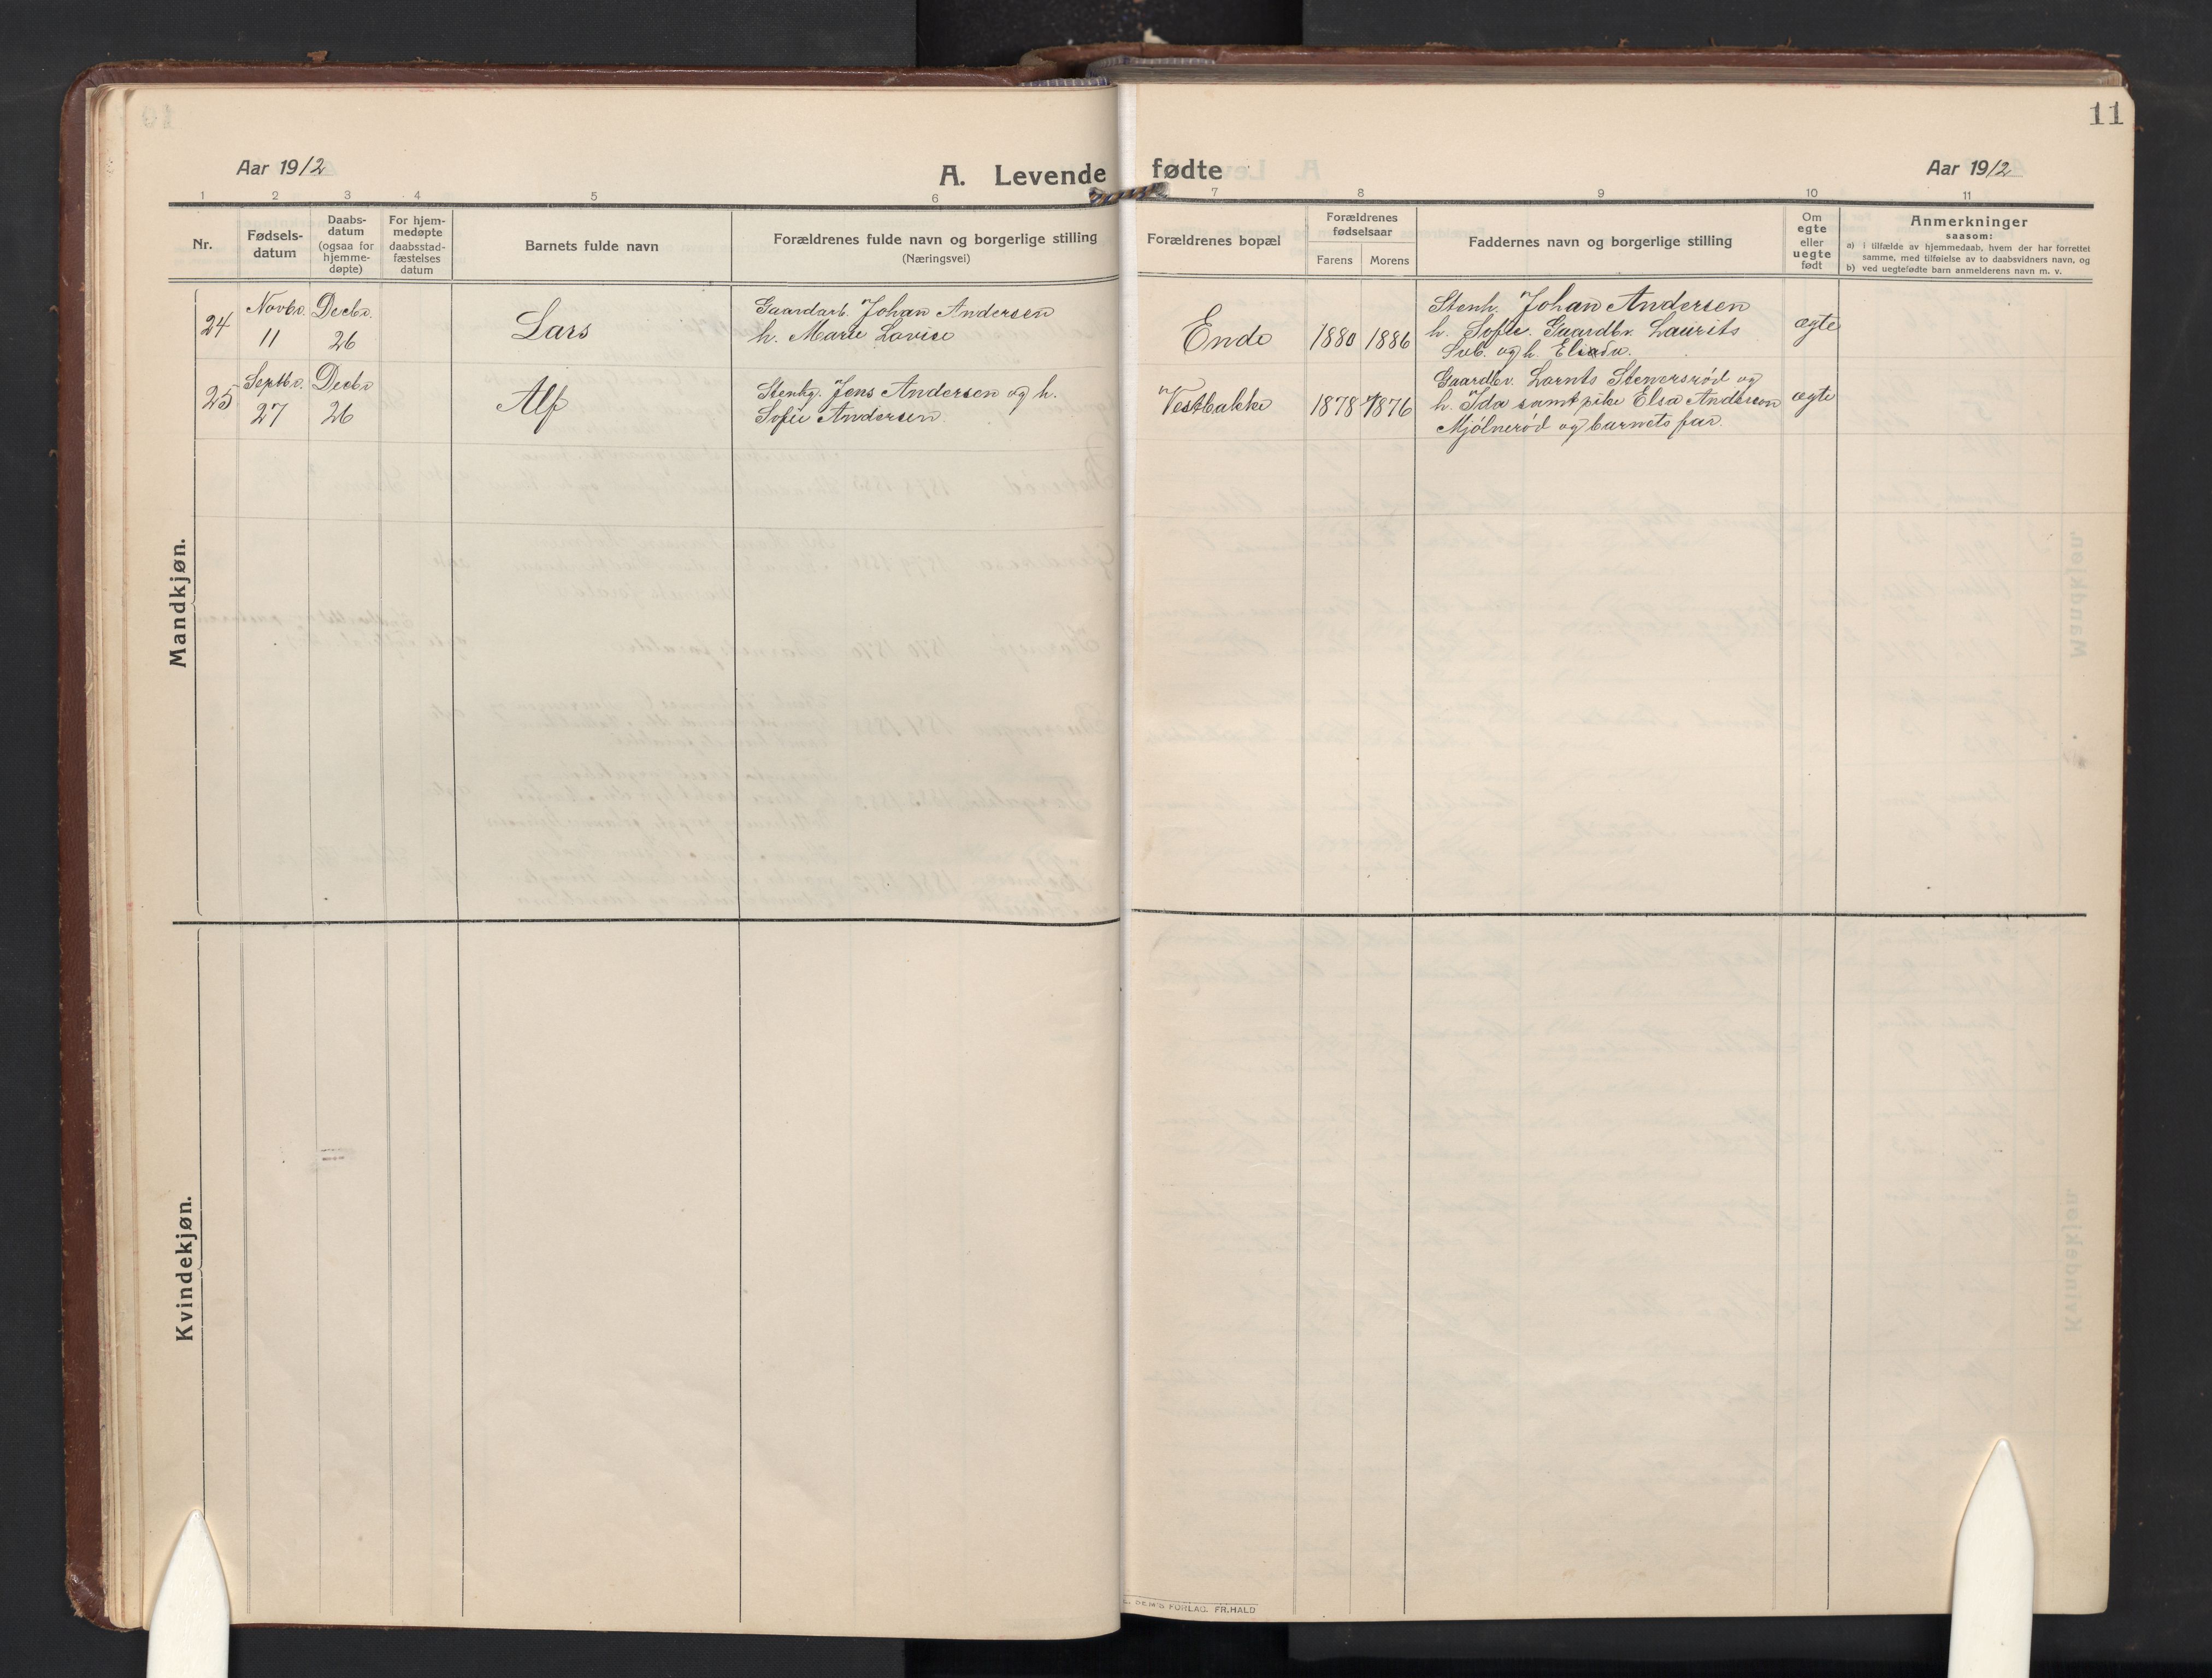 11
Aar 1912
A. Levende fødte
Aar 1912
1 2 3 4 5 6 7 8 9 10 11
Nr.
Fødsels-
datum
Daabs-
datum
(ogsaa for
hjemme-
døpte)
For hjem-
medøpte
daabsstad-
fæstelses
datum
Barnets fulde navn
Forældrenes fulde navn og borgerlige stilling
(Næringsvei)
Forældrenes bopæl
Forældrenes
fødselsaar
Farens Morens
Faddernes navn og borgerlige stilling
Om
egte
eller
uegte
født
Anmerkninger
saasom:
a) i tilfælde av hjemmedaab, hvem der har forrettet
samme, med tilføielse av to daabsvidners navn, og
b) ved uegtefødte barn anmelderens navn m. v.
Mandkjøn.
24
Novbr.
11
Decbr.
26
Lars
Gaardarb. Johan Andersen
h. Marie Lovise
Ende
1880 1886
Stenh. Johan Andersen
h. Sofie. Gaardbr. Laurits
og h.
ægte
25
Septbr.
27
Decbr
26
Alf
Stenhg. Jens Andersen og h.
Sofie Andersen.
Vestbakke
1878 1876
Gaardbr. Lornts Stenersrød og
h. Ida samt pike Elsa Anderson
Mjølnerød og barnets far.
ægte
Kvindekjøn.
FORLAG. FR.HALD